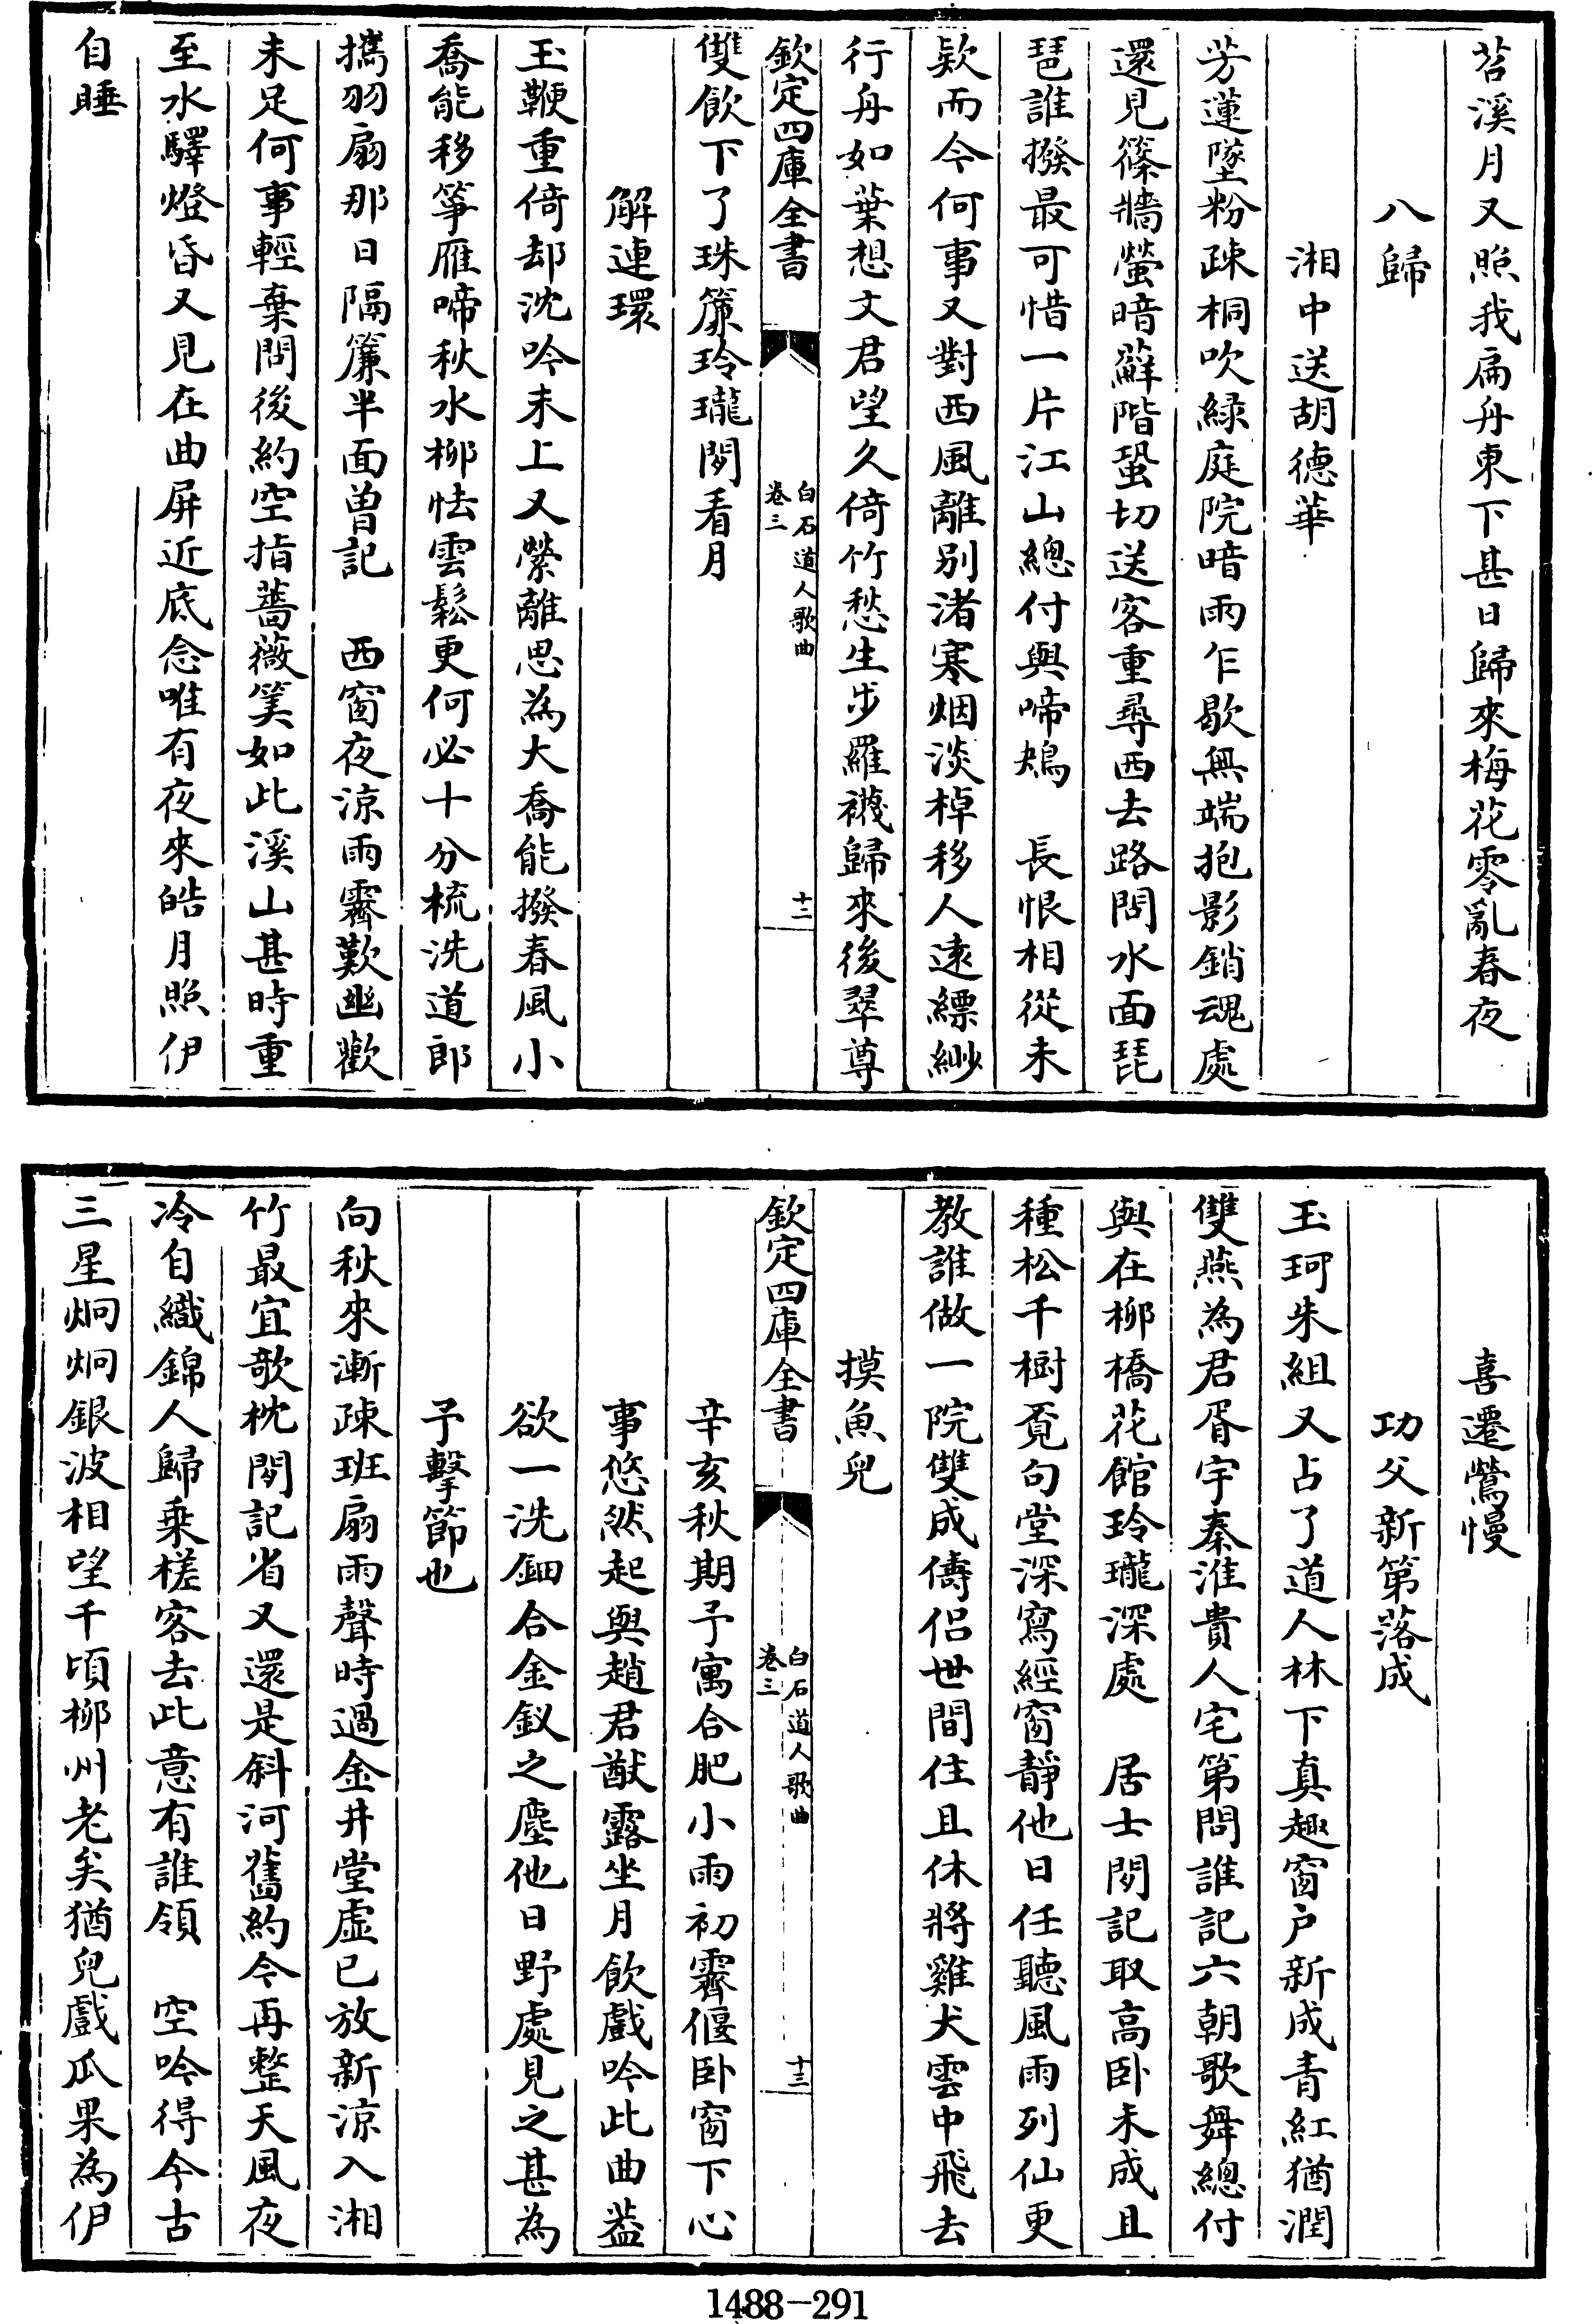 苕溪月又照我扁舟東下甚日歸來梅花零亂春夜
八歸
湘中送胡德華
芳蓮墜粉疎桐吹緑庭院暗雨乍歇無端抱影銷魂處
還見篠牆螢暗蘚階蛩切送客重尋西去路問水面琵
琶誰撥最可惜一片江山總付與啼鴂　長恨相從未
欵而今何事又對西風離别渚寒烟淡棹移人遠縹緲
行舟如葉想文君望久倚竹愁生步羅襪歸來後翠尊
欽定四庫全書
白石道人歌曲
卷三
十二
雙飲下了珠簾玲瓏閒看月
解連環
玉鞭重倚却沈吟未上又縈離思為大喬能撥春風小
喬能移筝雁啼秋水柳怯雲鬆更何必十分梳洗道郎
攜羽扇那日隔簾半面曽記　西窗夜涼雨霽歎幽歡
未足何事輕棄問後約空指薔薇笑如此溪山甚時重
至水驛燈昏又見在曲屏近底念唯有夜來皓月照伊
自睡
喜遷鶯慢
功父新第落成
玉珂朱組又占了道人林下真趣窗户新成青紅猶潤
雙燕為君胥宇秦淮貴人宅第問誰記六朝歌舞總付
與在柳橋花館玲瓏深處　居士閒記取高卧未成且
種松千樹覔句堂深寫經窗靜他日任聽風雨列仙更
教誰做一院雙成儔侣世間住且休將雞犬雲中飛去
摸魚兒
欽定四庫全書
白石道人歌曲
卷三
十三
辛亥秋期予寓合肥小雨初霽偃卧窗下心
事悠然起與趙君猷露坐月飲戲吟此曲葢
欲一洗鈿合金釵之塵他日野處見之甚為
予擊節也
向秋來漸疎班扇雨聲時過金井堂虚已放新涼入湘
竹最宜歌枕閒記省又還是斜河舊約今再整天風夜
冷自織錦人歸乗槎客去此意有誰領　空吟得今古
三星炯炯銀波相望千頃柳州老矣猶兒戲瓜果為伊
1488－291